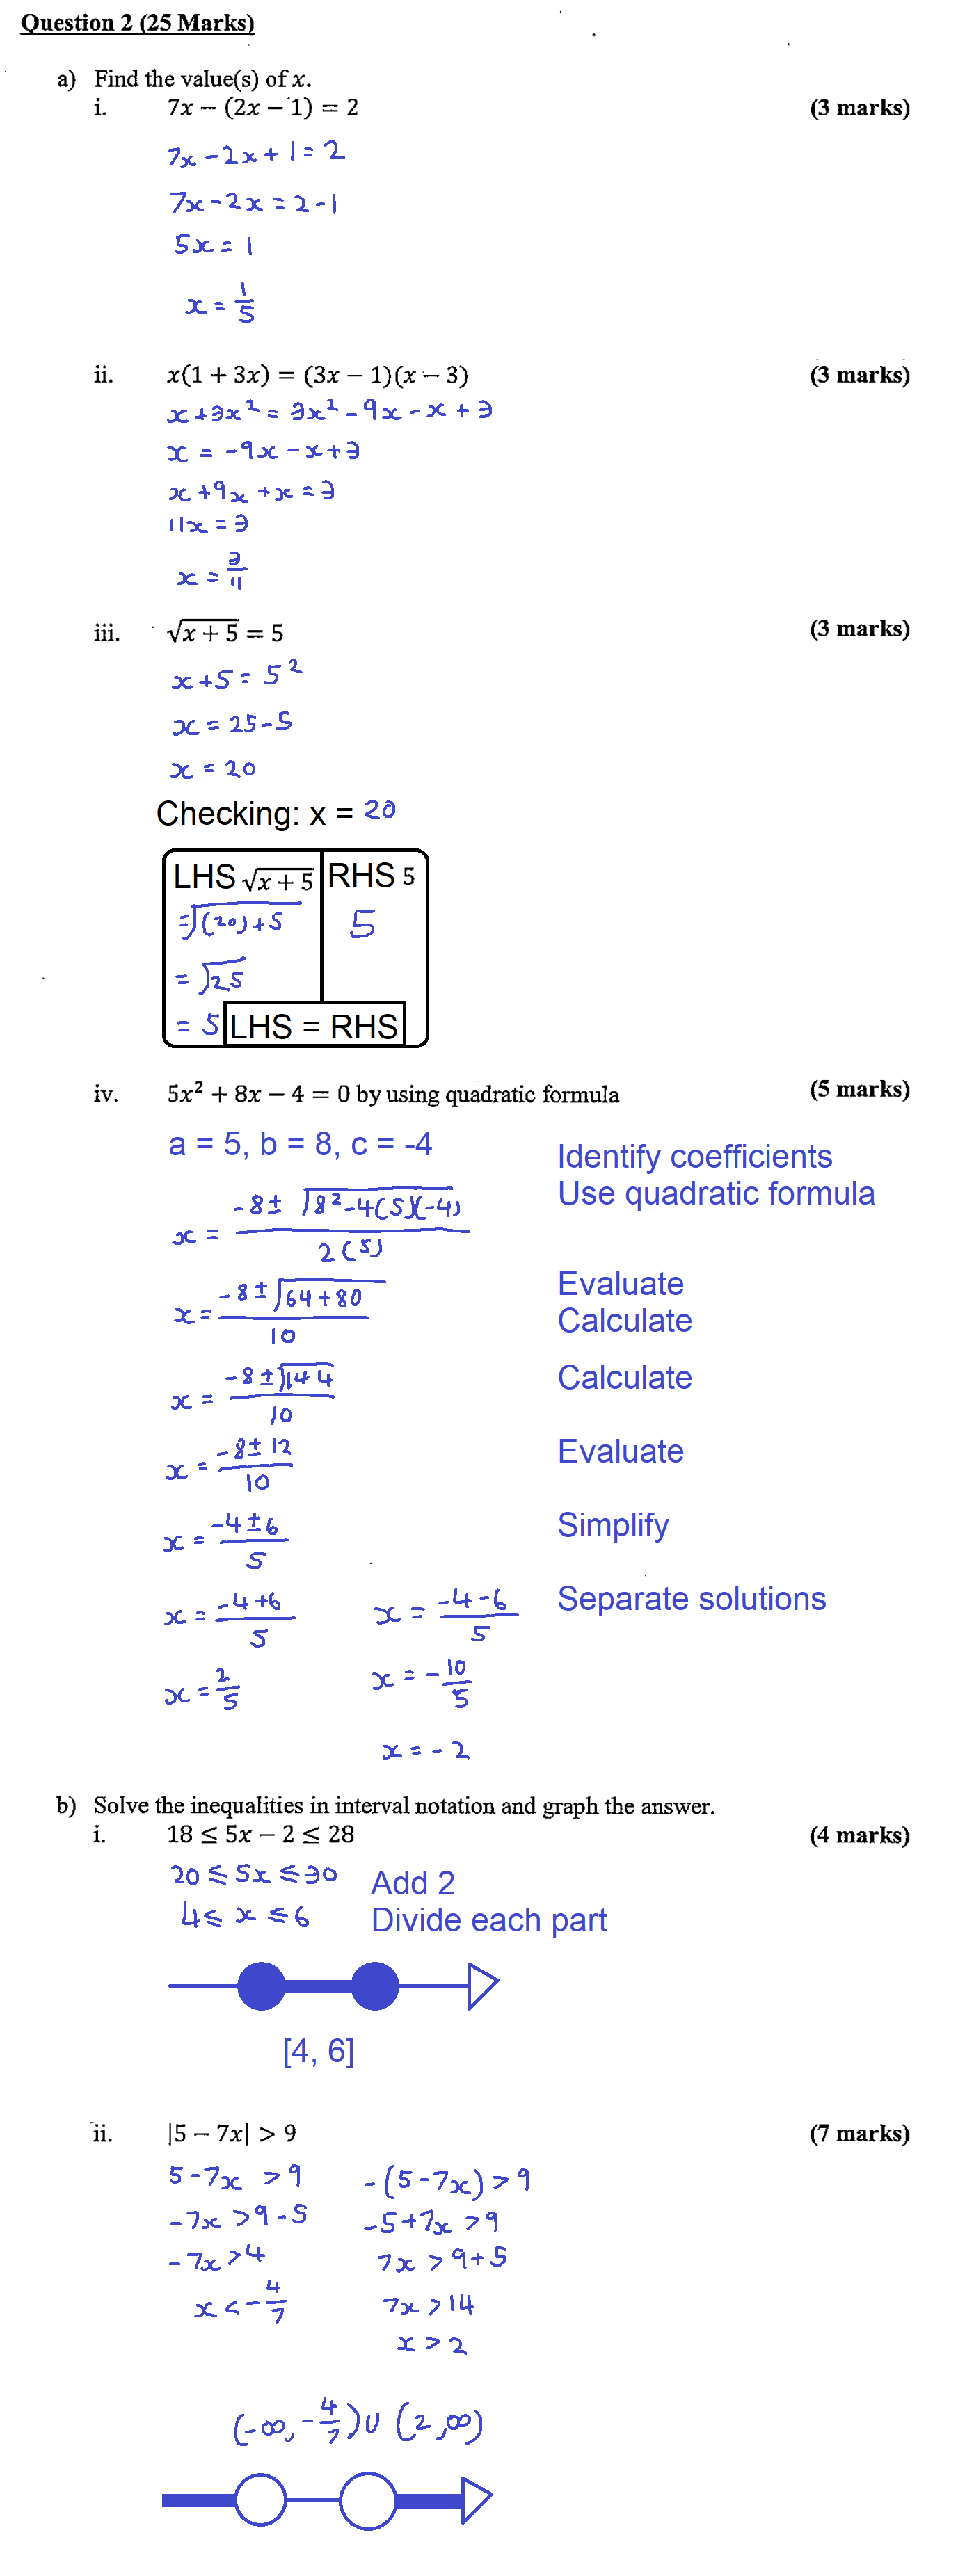 Question 2 (25 Marks)
a) Find the value(s) of x.
i. 7x − (2x − 1) = 2 (3 marks)
7x - 2x + 1 = 2
7x - 2x = 2 - 1
5x = 1
x = 1/5
ii. x(1 + 3x) = (3x − 1)(x − 3) (3 marks)
x + 3x² = 3x² - 9x - x + 3
x = -9x - x + 3
x + 9x + x = 3
11x = 3
x = 3/11
iii. √(x + 5) = 5 (3 marks)
x + 5 = 5²
x = 25 - 5
x = 20
Checking: x = 20
LHS √(x + 5) RHS 5
= √((20) + 5) 5
= √25
= 5 LHS = RHS
iv. 5x² + 8x − 4 = 0 by using quadratic formula (5 marks)
a = 5, b = 8, c = -4 Identify coefficients
x = (-8 ± √(8² - 4(5)(-4))) / 2(5) Use quadratic formula
x = (-8 ± √(64 + 80)) / 10 Evaluate
Calculate
x = (-8 ± √144) / 10 Calculate
x = (-8 ± 12) / 10 Evaluate
x = (-4 ± 6) / 5 Simplify
x = (-4 + 6) / 5 x = (-4 - 6) / 5 Separate solutions
x = 2/5 x = -10/5
x = -2
b) Solve the inequalities in interval notation and graph the answer.
i. 18 ≤ 5x − 2 ≤ 28 (4 marks)
20 ≤ 5x ≤ 30 Add 2
4 ≤ x ≤ 6 Divide each part
[4, 6]
ii. |5 − 7x| > 9 (7 marks)
5 - 7x > 9 -(5 - 7x) > 9
-7x > 9 - 5 -5 + 7x > 9
-7x > 4 7x > 9 + 5
x < -4/7 7x > 14
x > 2
(-∞, -4/7) ∪ (2, ∞)